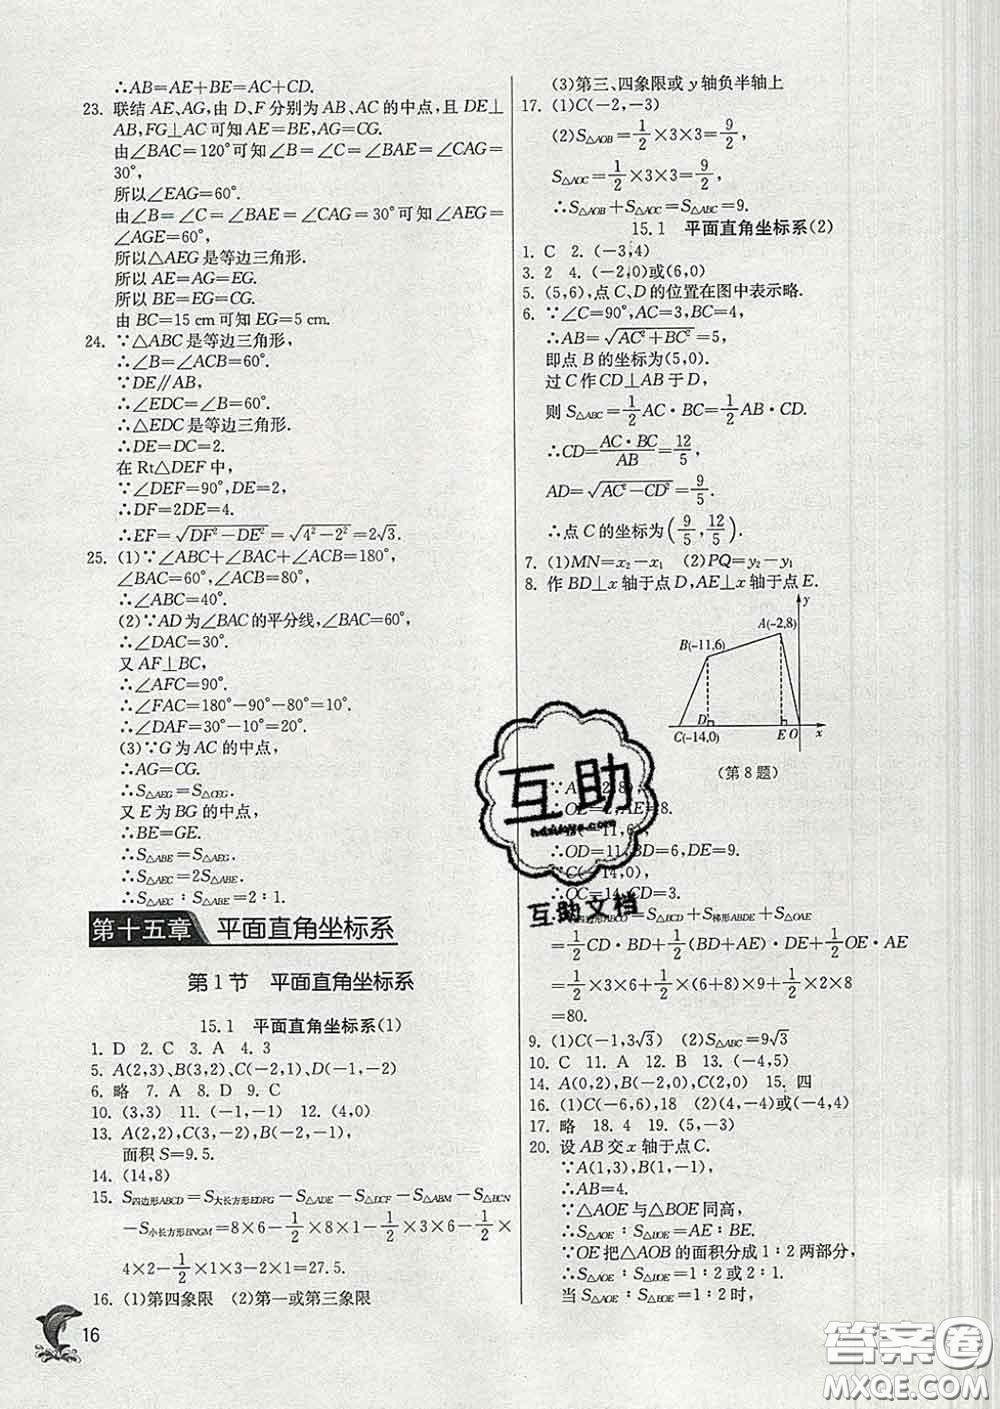 ∴AB=AE+BE=AC+CD.
23. 联结 AE、AG,由 D、F 分别为 AB、AC 的中点,且 DE⊥
AB,FG⊥AC 可知 AE=BE,AG=CG.
由∠BAC=120°可知∠B=∠C=∠BAE=∠CAG=
30°,
所以∠EAG=60°.
由∠B=∠C=∠BAE=∠CAG=30°可知∠AEG=
∠AGE=60°,
所以△AEG 是等边三角形.
所以 AE=AG=EG.
所以 BE=EG=CG.
由 BC=15 cm 可知 EG=5 cm.
24. ∵△ABC 是等边三角形,
∴∠B=∠ACB=60°.
∵DE∥AB,
∴∠EDC=∠B=60°.
∴△EDC 是等边三角形.
∴DE=DC=2.
在 Rt△DEF 中,
∵∠DEF=90°,DE=2,
∴DF=2DE=4.
∴EF=√(DF²-DE²)=√(4²-2²)=2√3.
25. (1)∵∠ABC+∠BAC+∠ACB=180°,
∠BAC=60°,∠ACB=80°,
∴∠ABC=40°.
(2)∵AD 为∠BAC 的平分线,∠BAC=60°,
∴∠DAC=30°.
又 AF⊥BC,
∴∠AFC=90°.
∴∠FAC=180°-90°-80°=10°.
∴∠DAF=30°-10°=20°.
(3)∵G 为 AC 的中点,
∴AG=CG.
∴S△AEG=S△CEG.
又 E 为 BG 的中点,
∴BE=GE.
∴S△ABE=S△AEG.
∴S△AEC=2S△ABE.
∴S△AEC∶S△ABE=2∶1.
第十五章 平面直角坐标系
第 1 节 平面直角坐标系
15.1 平面直角坐标系(1)
1. D 2. C 3. A 4. 3
5. A(2,3)、B(3,2)、C(-2,1)、D(-1,-2)
6. 略 7. A 8. D 9. C
10. (3,3) 11. (-1,-1) 12. (4,0)
13. A(2,2),C(3,-2),B(-2,-1),
面积 S=9.5.
14. (14,8)
15. S四边形ABCD=S大长方形EDFG-S△ADE-S△DCF-S△ABM-S△BCN
-S小长方形BNGM=8×6-1/2×8×1-1/2×3×6-1/2×
4×2-1/2×1×3-2×1=27.5.
16. (1)第四象限 (2)第一或第三象限
16
(3)第三、四象限或 y 轴负半轴上
17. (1)C(-2,-3)
(2)S△AOB=1/2×3×3=9/2,
S△AOC=1/2×3×3=9/2,
∴S△AOB+S△AOC=S△ABC=9.
15.1 平面直角坐标系(2)
1. C 2. (-3,4)
3. 2 4. (-2,0)或(6,0)
5. (5,6),点 C、D 的位置在图中表示略.
6. ∵∠C=90°,AC=3,BC=4,
∴AB=√(AC²+BC²)=5,
即点 B 的坐标为(5,0).
过 C 作 CD⊥AB 于 D,
则 S△ABC=1/2 AC·BC=1/2 AB·CD.
∴CD=AC·BC/AB=12/5,
AD=√(AC²-CD²)=9/5.
∴点 C 的坐标为(9/5,12/5).
7. (1)MN=x₂-x₁ (2)PQ=y₂-y₁
8. 作 BD⊥x 轴于点 D,AE⊥x 轴于点 E.
y
A(-2,8)
B(-11,6)
D E O x
C(-14,0)
(第 8 题)
∵A(-2,8),
∴OE=2,AE=8.
(-11,6),
∴OD=11,BD=6,DE=9.
(-14,0),
∴OC=14,CD=3.
ABCO=S△BCD+S梯形ABDE+S△OAE
=1/2 CD·BD+1/2(BD+AE)·DE+1/2 OE·AE
=1/2×3×6+1/2×(6+8)×9+1/2×2×8
=80.
9. (1)C(-1,3√3) (2)S△ABC=9√3
10. C 11. A 12. B 13. (-4,5)
14. A(0,2),B(-4,-2),C(2,0) 15. 四
16. (1)C(-6,6),18 (2)(4,-4)或(-4,4)
17. 略 18. 4 19. (5,-3)
20. 设 AB 交 x 轴于点 C.
∵A(1,3),B(1,-1),
∴AB=4.
∵△AOE 与△BOE 同高,
∴S△AOE∶S△BOE=AE∶BE.
∵OE 把△AOB 的面积分成 1∶2 两部分,
∴S△AOE∶S△BOE=1∶2 或 2∶1.
当 S△AOE∶S△BOE=1∶2 时,
互助
hdzuoye.com
互助文档
答案圈
MXQE.COM